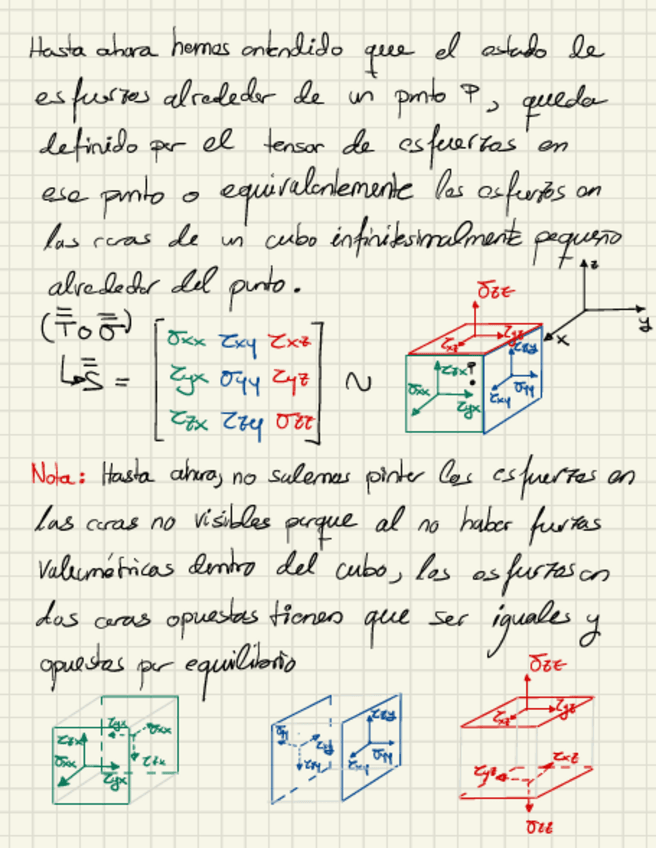 Hasta ahora hemos entendido que el estado de
esfuerzos alrededor de un punto P, queda
definido por el tensor de esfuerzos en
ese punto o equivalentemente los esfuerzos en
las caras de un cubo infinitesimalmente pequeño
alrededor del punto.
(T̿ o σ̿)
↳ S̿ =
σxx τxy τxz
τyx σyy τyz
τzx τzy σzz
~
σzz
τxz τyz
τzx P
σxx τyx
τzy
τxy σyy
z
x
y
Nota: Hasta ahora, no solemos pintar los esfuerzos en
las caras no visibles porque al no haber fuerzas
volumétricas dentro del cubo, los esfuerzos en
las caras opuestas tienen que ser iguales y
opuestas por equilibrio
τzx
σxx
τyx
τyx σxx
τzx
σyy
τxy
τzy
τzy
τxy σyy
σzz
τxz τyz
τyz τxz
σzz